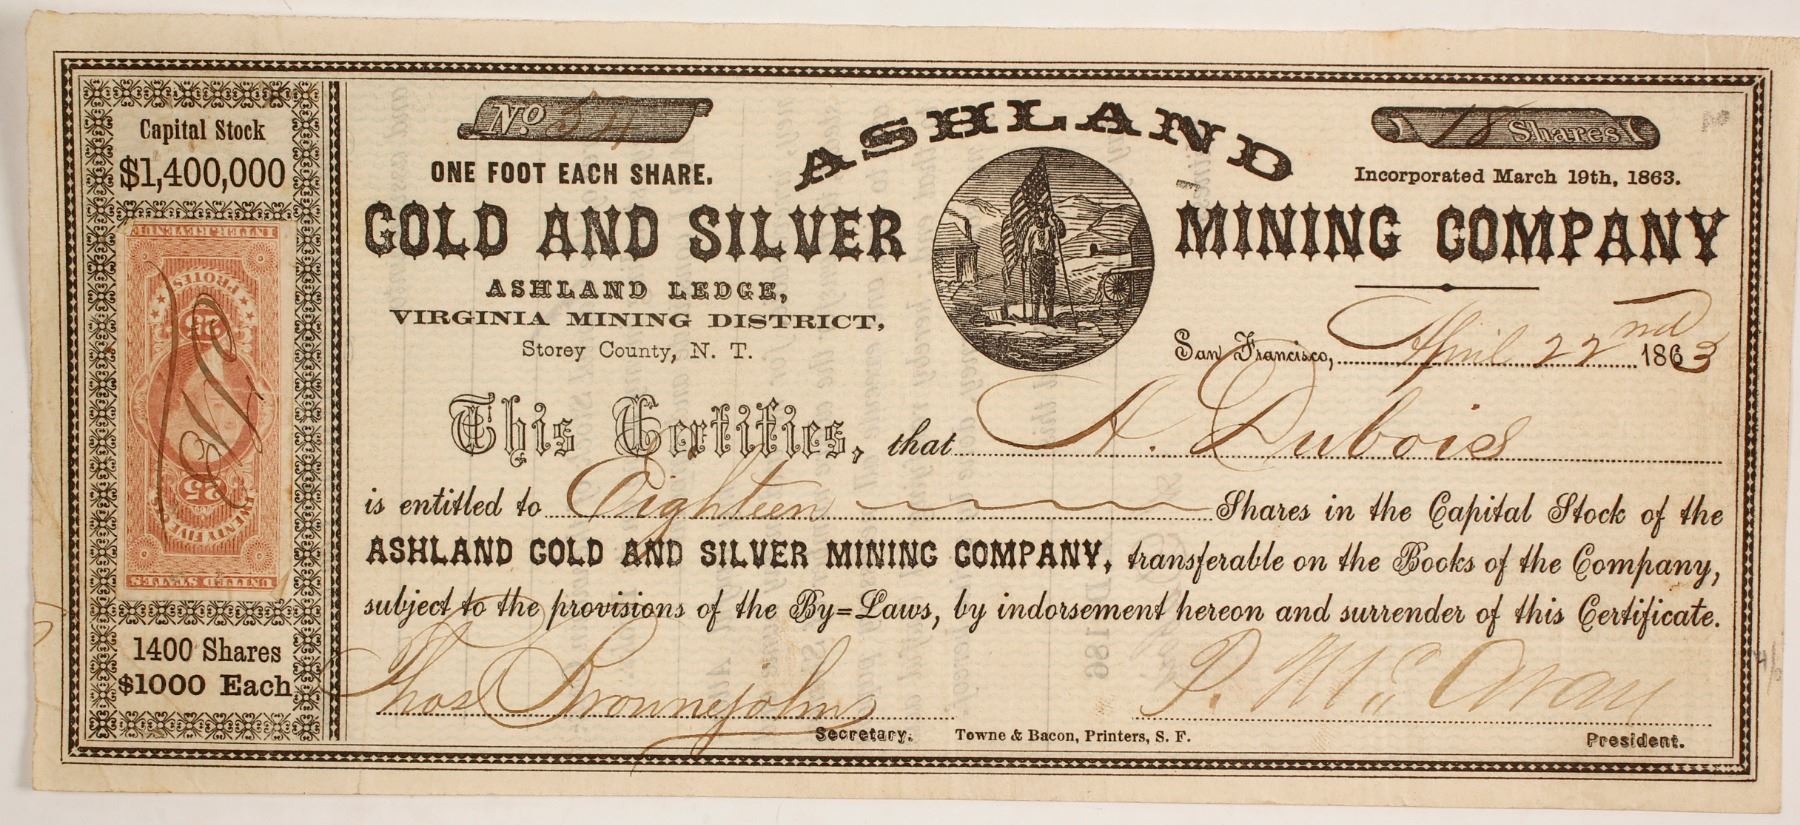 Capital Stock
$1,400,000
INTER. REVENUE
PROTES
25
25
TWENTY FIVE
UNITED STATES
1400 Shares
$1000 Each
No
ONE FOOT EACH SHARE.
18 Shares
Incorporated March 19th, 1863.
ASHLAND
GOLD AND SILVER MINING COMPANY
ASHLAND LEDGE,
VIRGINIA MINING DISTRICT,
Storey County, N. T.
San Francisco, April 22nd 1863
This Certifies, that A. Dubois
is entitled to Eighteen Shares in the Capital Stock of the
ASHLAND GOLD AND SILVER MINING COMPANY, transferable on the Books of the Company,
subject to the provisions of the By=Laws, by indorsement hereon and surrender of this Certificate.
Thos Brownejohns
Secretary.
Towne & Bacon, Printers, S. F.
P. Mc
President.